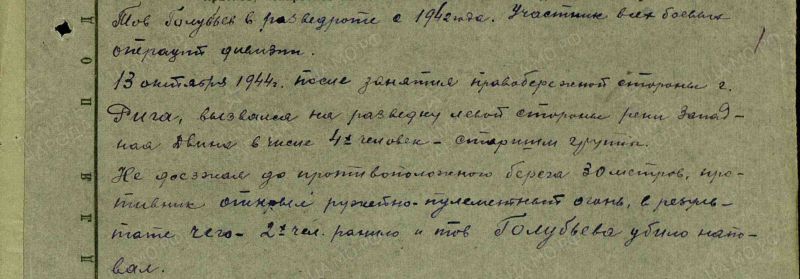 Тов Голубьев в разведроте с 1942 года. Участник всех боевых
операций дивизии.
13 октября 1944г. после занятия правобережной стороны г.
Рига, вызвался на разведку левой стороны реки Запад-
ная Двина в числе 4х человек - старшим группы.
Не доезжая до противоположного берега 30 метров, про-
тивник открыл ружейно-пулеметный огонь, в резуль-
тате чего - 2х чел. ранило и тов Голубьева убило напо-
вал.